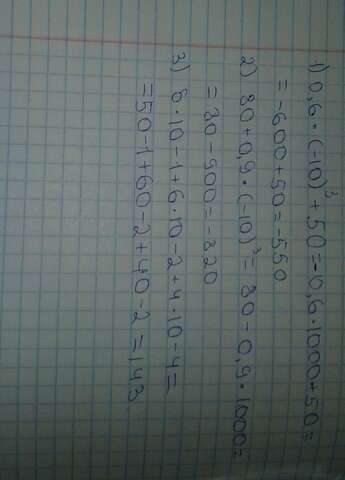 1) 0,6·(-10)³+50=-0,6·1000+50=
=-600+50=-550
2) 80+0,9·(-10)³=80-0,9·1000=
=80-900=-820
3) 5·10-1+6·10-2+4·10-4=
=50-1+60-2+40-2=143